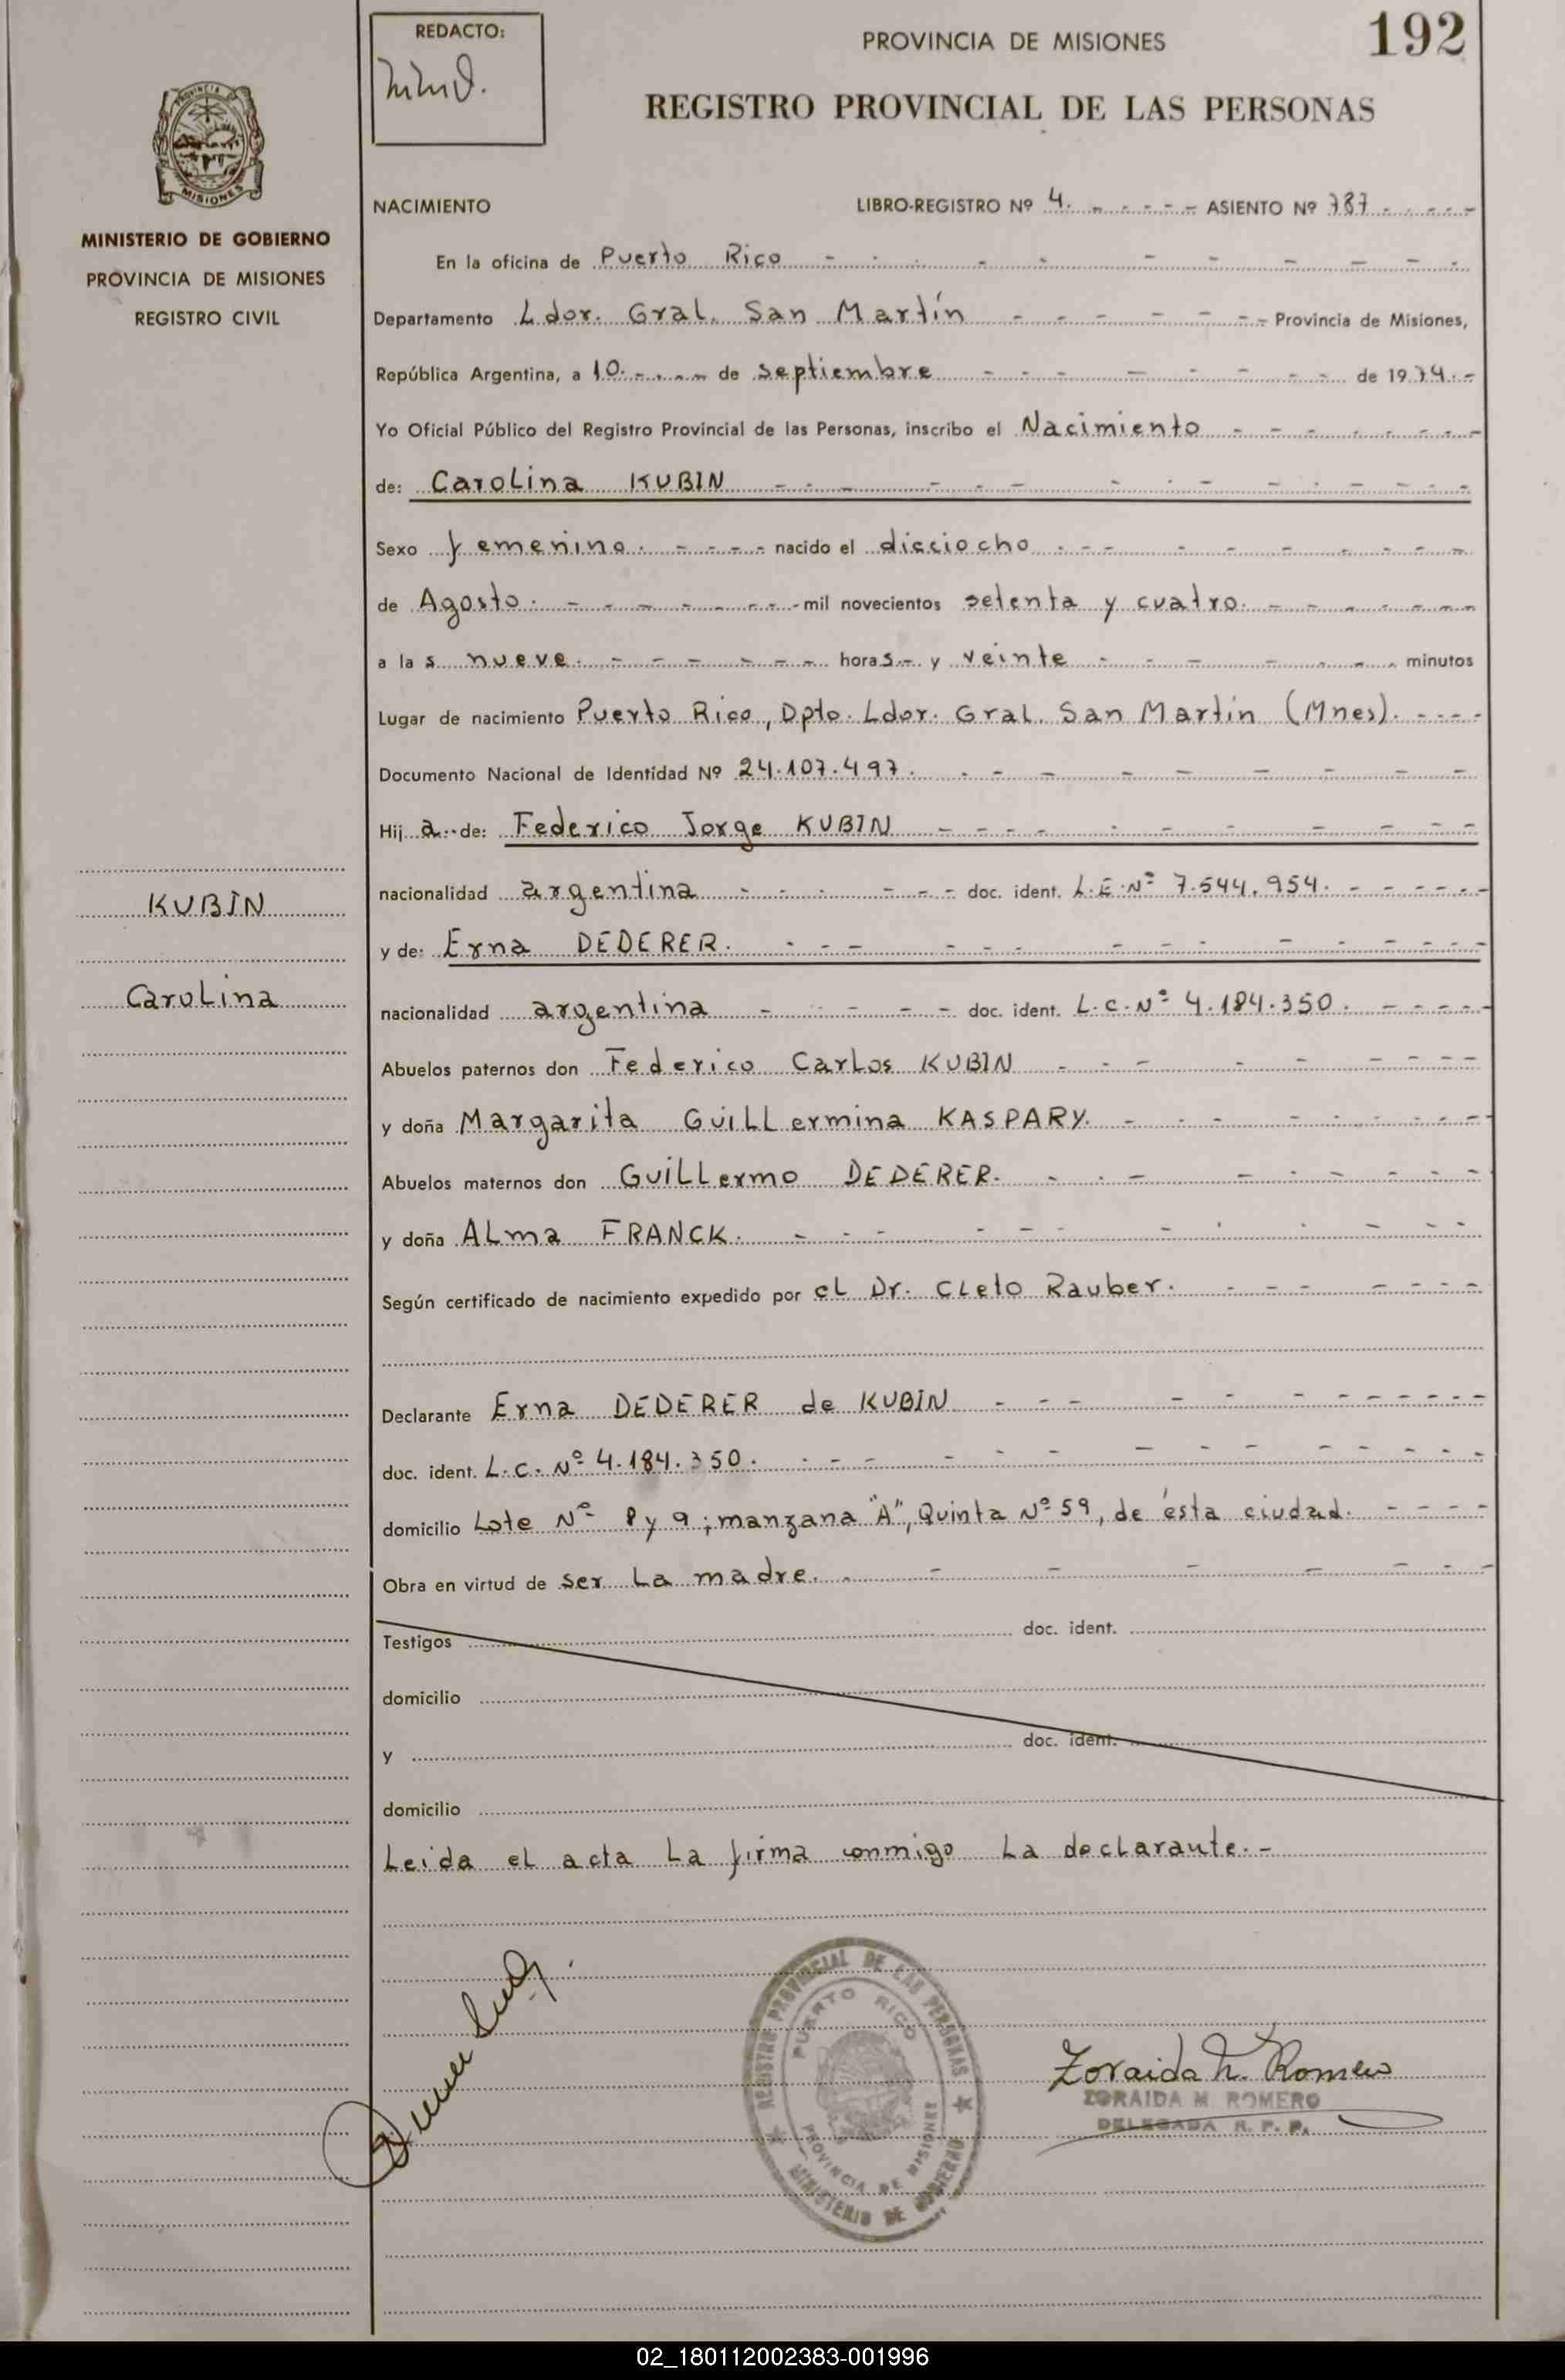 REDACTO:
PROVINCIA DE MISIONES
192
REGISTRO PROVINCIAL DE LAS PERSONAS
MISIONES
MINISTERIO DE GOBIERNO
PROVINCIA DE MISIONES
REGISTRO CIVIL
NACIMIENTO LIBRO-REGISTRO Nº 4. ASIENTO Nº 787
En la oficina de Puerto Rico
Departamento Ldor. Gral. San Martín Provincia de Misiones,
República Argentina, a 10 de septiembre de 1974.
Yo Oficial Público del Registro Provincial de las Personas, inscribo el Nacimiento
de: Carolina KUBIN
Sexo femenino. nacido el dieciocho
de Agosto. mil novecientos setenta y cuatro.
a las nueve. horas y veinte minutos
Lugar de nacimiento Puerto Rico, Dpto. Ldor. Gral. San Martín (Mnes).
Documento Nacional de Identidad Nº 24.107.497.
Hija de: Federico Jorge KUBIN
nacionalidad argentina doc. ident. L.E.Nº 7.544.954.
y de: Erna DEDERER.
nacionalidad argentina doc. ident. L.C.Nº 4.184.350.
Abuelos paternos don Federico Carlos KUBIN
y doña Margarita Guillermina KASPARY.
Abuelos maternos don Guillermo DEDERER.
y doña Alma FRANCK.
Según certificado de nacimiento expedido por el Dr. Cleto Rauber.
Declarante Erna DEDERER de KUBIN
doc. ident. L.C. Nº 4.184.350.
domicilio Lote Nº 8 y 9; manzana "A", Quinta Nº 59, de ésta ciudad.
Obra en virtud de ser la madre.
Testigos doc. ident.
domicilio
y doc. ident.
domicilio
Leida el acta la firma conmigo la declarante.-
KUBIN
Carolina
REGISTRO PROVINCIAL DE LAS PERSONAS
PUERTO RICO
PROVINCIA DE MISIONES
MINISTERIO DE GOBIERNO
Zoraida M. Romero
ZORAIDA M. ROMERO
DELEGADA R. P. P.
02_180112002383-001996